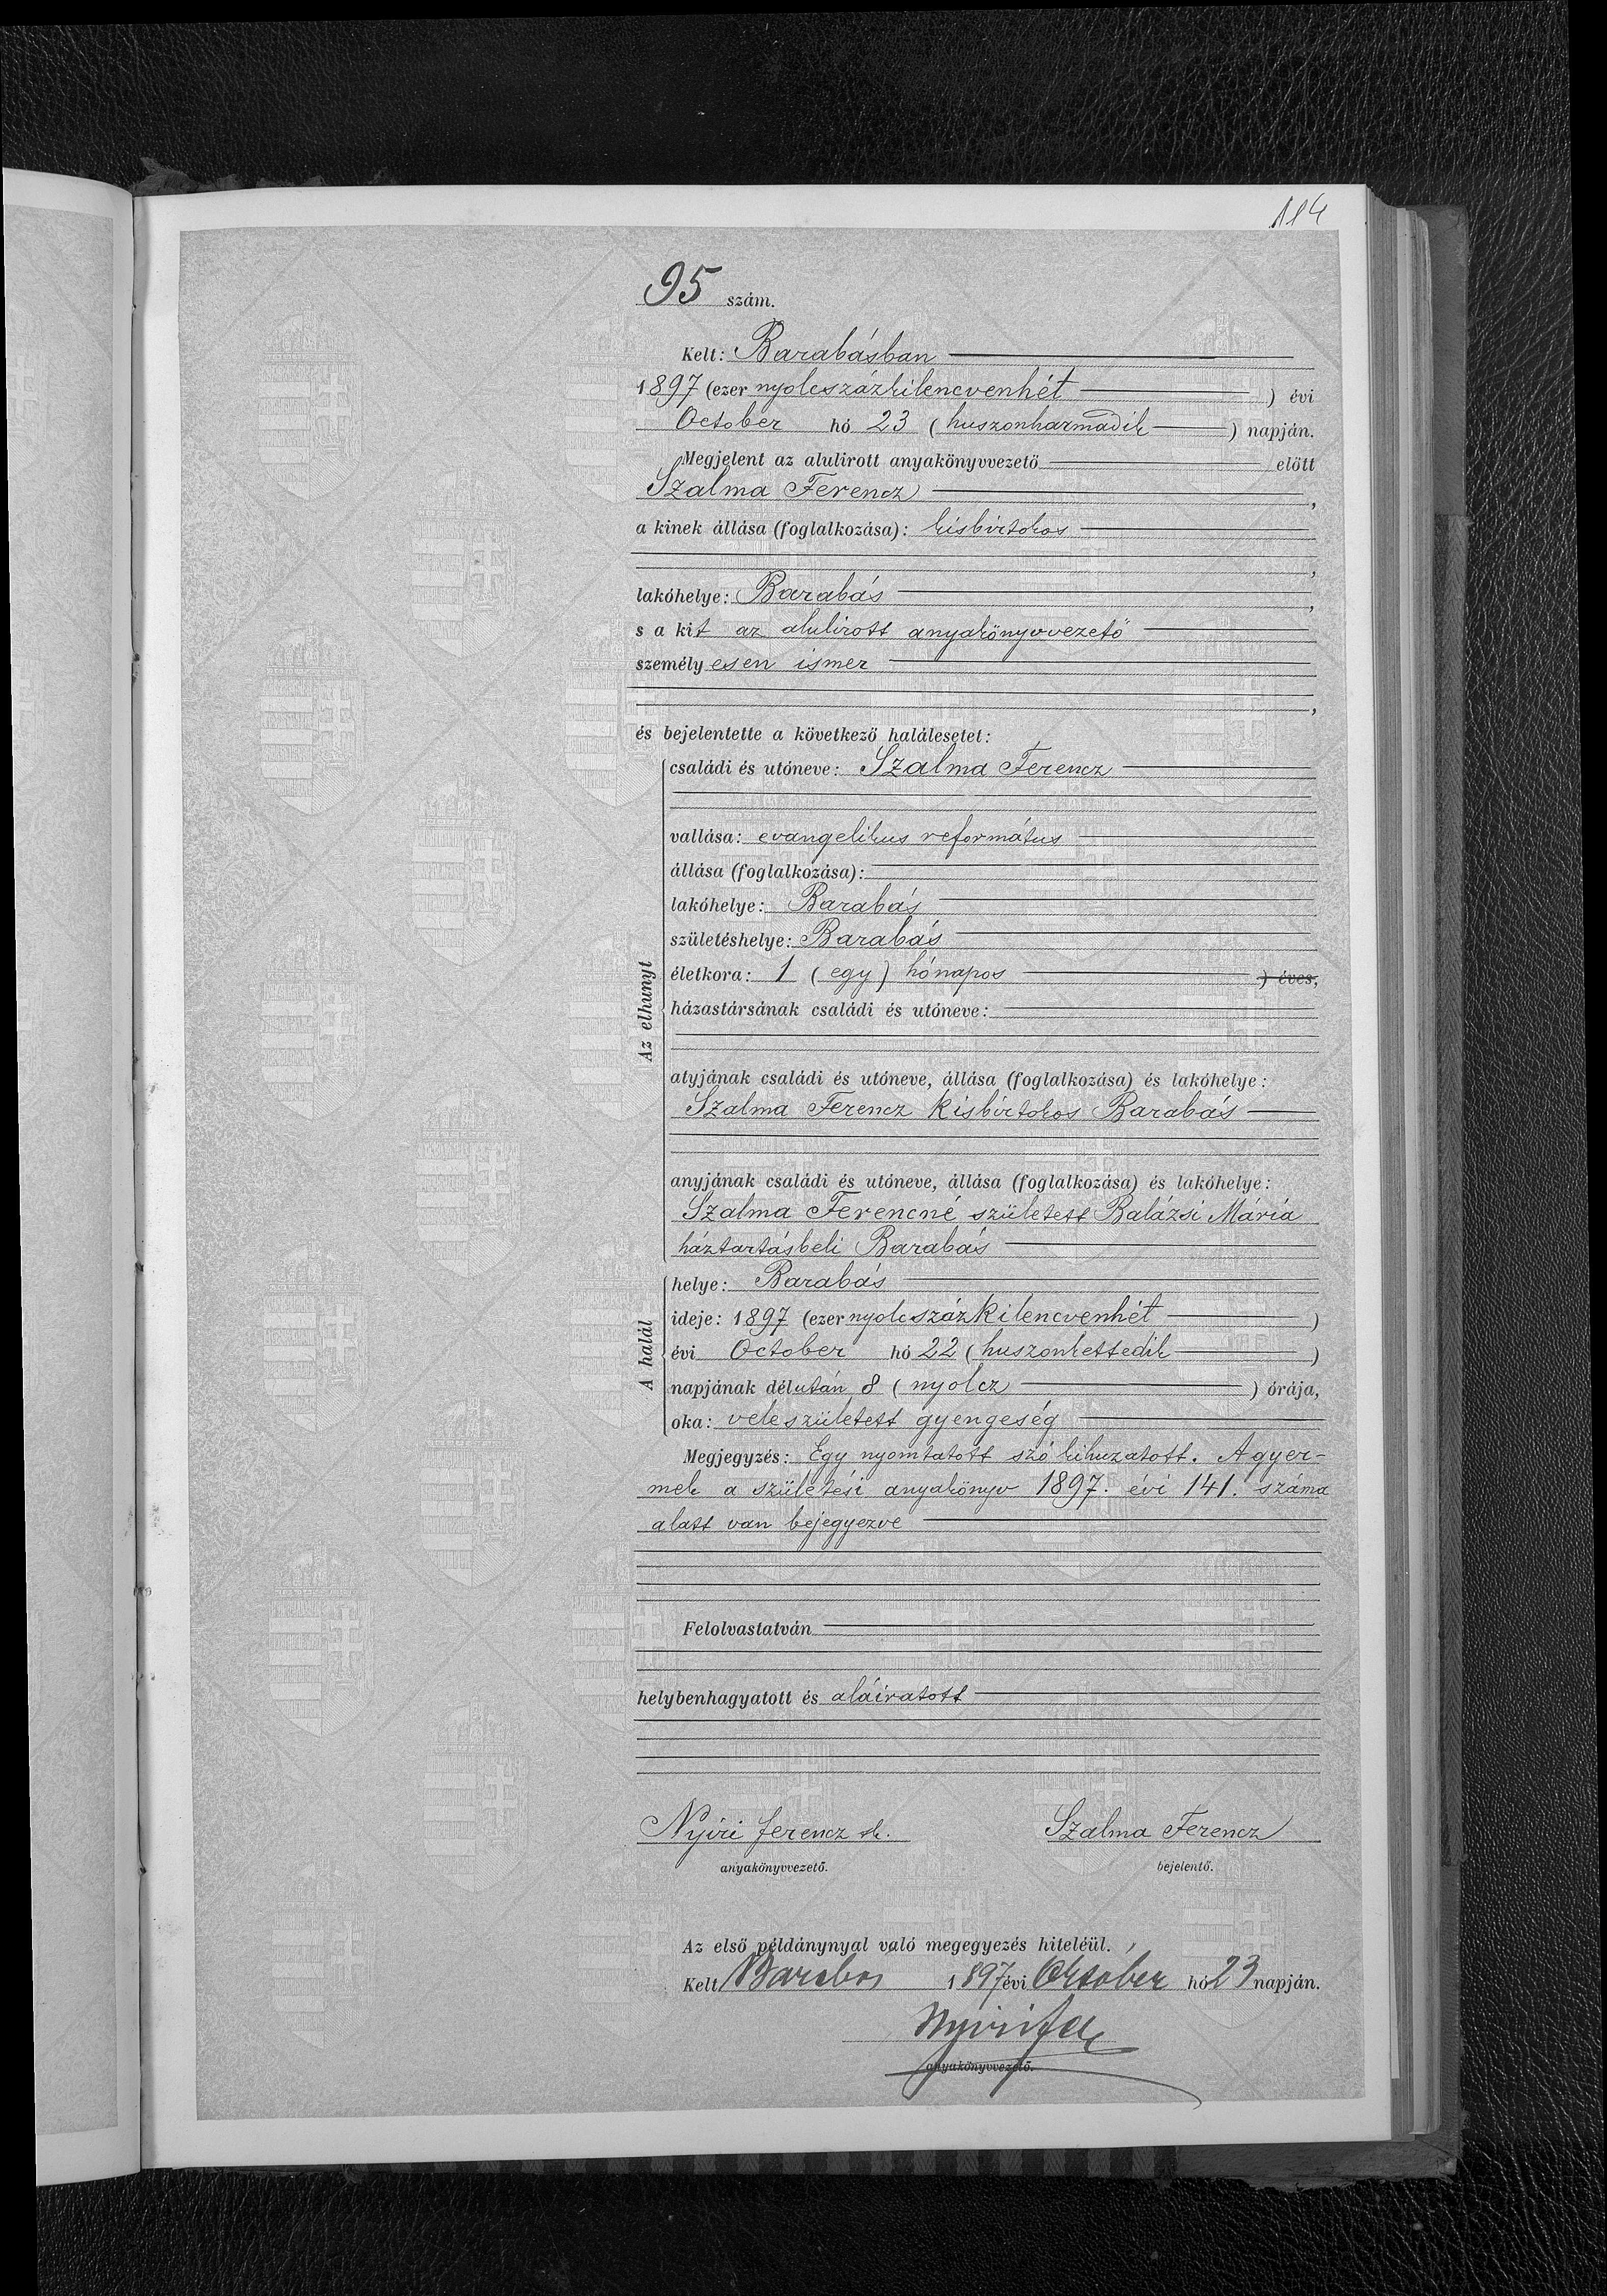 114
95 szám.
Kelt: Barabásban
1897 (ezer nyolcszázkilencvenhét ) évi
October hó 23 (huszonharmadik ) napján.
Megjelent az alulirott anyakönyvvezető előtt
Szalma Ferencz ,
a kinek állása (foglalkozása): kisbirtokos
,
lakóhelye: Barabás ,
s a kit az alulirott anyakönyvvezető
személyesen ismer
,
és bejelentette a következő halálesetet:
Az elhunyt
családi és utóneve: Szalma Ferencz
vallása: evangelikus református
állása (foglalkozása):
lakóhelye: Barabás
születéshelye: Barabás
életkora: 1 (egy) hónapos ) éves,
házastársának családi és utóneve:
atyjának családi és utóneve, állása (foglalkozása) és lakóhelye:
Szalma Ferencz kisbirtokos Barabás
anyjának családi és utóneve, állása (foglalkozása) és lakóhelye:
Szalma Ferencné született Balázsi Mária
háztartásbeli Barabás
A halál
helye: Barabás
ideje: 1897 (ezer nyolcszázkilencvenhét )
évi October hó 22 (huszonkettedik )
napjának délután 8 (nyolcz ) órája,
oka: veleszületett gyengeség
Megjegyzés: Egy nyomtatott szó kihuzatott. A gyer-
mek a születési anyakönyv 1897. évi 141. száma
alatt van bejegyezve
Felolvastatván
helybenhagyatott és aláiratott
Nyiri Ferencz sk. Szalma Ferencz
anyakönyvvezető. bejelentő.
Az első példánynyal való megegyezés hiteléül.
Kelt Barabás 1897 évi Október hó 23 napján.
anyakönyvvezető.